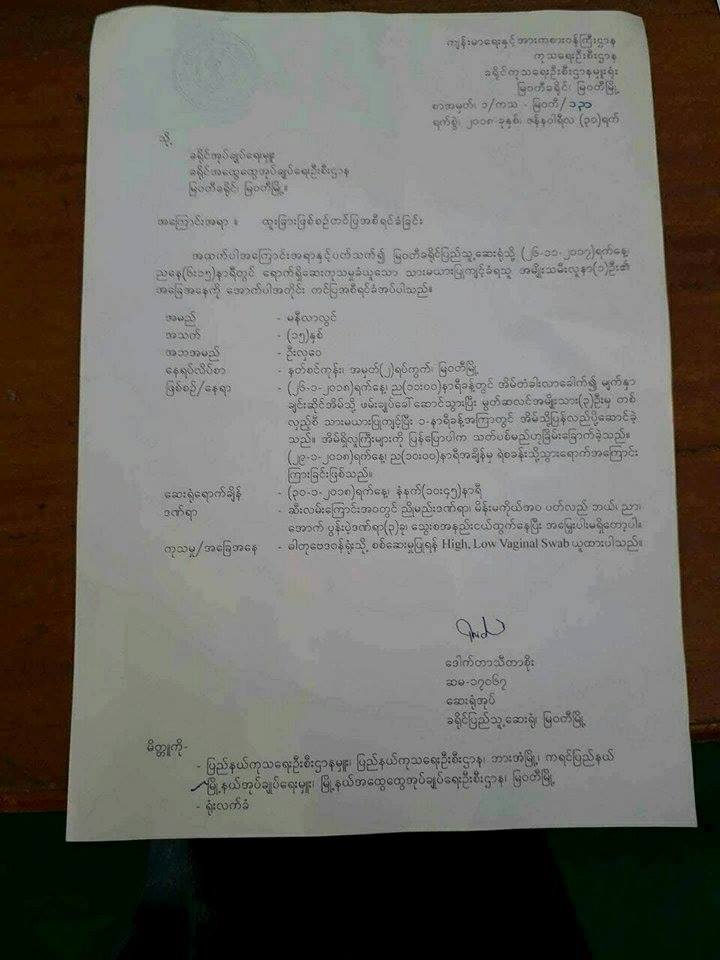 ကျန်းမာရေးနှင့်အားကစားဝန်ကြီးဌာန
ကုသရေးဦးစီးဌာန
ခရိုင်ကုသရေးဦးစီးဌာနမှူးရုံး
မြဝတီခရိုင်၊ မြဝတီမြို့
စာအမှတ်၊ ၁/ကသ - မြဝတီ/ ၁၃၁
ရက်စွဲ၊ ၂၀၁၈-ခုနှစ်၊ ဇန်နဝါရီလ (၃၁)ရက်
သို့
ခရိုင်အုပ်ချုပ်ရေးမှူး
ခရိုင်အထွေထွေအုပ်ချုပ်ရေးဦးစီးဌာန
မြဝတီခရိုင်၊ မြဝတီမြို့။
အကြောင်းအရာ ။ ထူးခြားဖြစ်စဉ်တင်ပြအစီရင်ခံခြင်း
အထက်ပါအကြောင်းအရာနှင့်ပတ်သက်၍ မြဝတီခရိုင်ပြည်သူ့ဆေးရုံသို့ (၂၆-၁၁-၂၀၁၇)ရက်နေ့၊
ညနေ(၆း၁၅)နာရီတွင် ရောက်ရှိဆေးကုသမှုခံယူသော သားမယားပြုကျင့်ခံရသူ အမျိုးသမီးလူနာ(၁)ဦး၏
အခြေအနေကို အောက်ပါအတိုင်း တင်ပြအစီရင်ခံအပ်ပါသည်။
အမည် - မနီလာလွင်
အသက် - (၁၅)နှစ်
အဘအမည် - ဦးလှဝေ
နေရပ်လိပ်စာ - နတ်စင်ကုန်း၊ အမှတ်(၂)ရပ်ကွက်၊ မြဝတီမြို့
ဖြစ်စဉ်/နေရာ - (၂၆-၁-၂၀၁၈)ရက်နေ့၊ ည(၁၁း၀၀)နာရီခန့်တွင် အိမ်တံခါးလာခေါက်၍ မျက်နှာ
ချင်းဆိုင်အိမ်သို့ ဖမ်းချုပ်ခေါ်ဆောင်သွားပြီး မွတ်ဆလင်အမျိုးသား(၃)ဦးမှ တစ်
လှည့်စီ သားမယားပြုကျင့်ပြီး ၁-နာရီခန့်အကြာတွင် အိမ်သို့ပြန်လည်ပို့ဆောင်ခဲ့
သည်။ အိမ်ရှိလူကြီးများကို ပြန်ပြောပါက သတ်ပစ်မည်ဟုခြိမ်းခြောက်ခဲ့သည်။
(၂၉-၁-၂၀၁၈)ရက်နေ့၊ ည(၁၀း၀၀)နာရီအချိန်မှ ရဲစခန်းသို့သွားရောက်အကြောင်း
ကြားခြင်းဖြစ်သည်။
ဆေးရုံရောက်ချိန် - (၃၀-၁-၂၀၁၈)ရက်နေ့၊ နံနက်(၁၀း၄၅)နာရီ
ဒဏ်ရာ - ဆီးလမ်းကြောင်းအဝတွင် ညိုမည်းဒဏ်ရာ၊ မိန်းမကိုယ်အဝ ပတ်လည် ဘယ်၊ ညာ၊
အောက် ပွန်းပဲ့ဒဏ်ရာ(၃)ခု၊ သွေးစအနည်းငယ်ထွက်နေပြီး အမြှေးပါးမရှိတော့ပါ။
ကုသမှု/အခြေအနေ - ဓါတုဗေဒဝန်ရုံးသို့ စစ်ဆေးမှုပြုရန် High, Low Vaginal Swab ယူထားပါသည်။
ဒေါက်တာသီတာစိုး
ဆမ-၁၇၀၆၇
ဆေးရုံအုပ်
ခရိုင်ပြည်သူ့ဆေးရုံ၊ မြဝတီမြို့
မိတ္တူကို-
- ပြည်နယ်ကုသရေးဦးစီးဌာနမှူး၊ ပြည်နယ်ကုသရေးဦးစီးဌာန၊ ဘားအံမြို့၊ ကရင်ပြည်နယ်
မြို့နယ်အုပ်ချုပ်ရေးမှူး၊ မြို့နယ်အထွေထွေအုပ်ချုပ်ရေးဦးစီးဌာန၊ မြဝတီမြို့
- ရုံးလက်ခံ